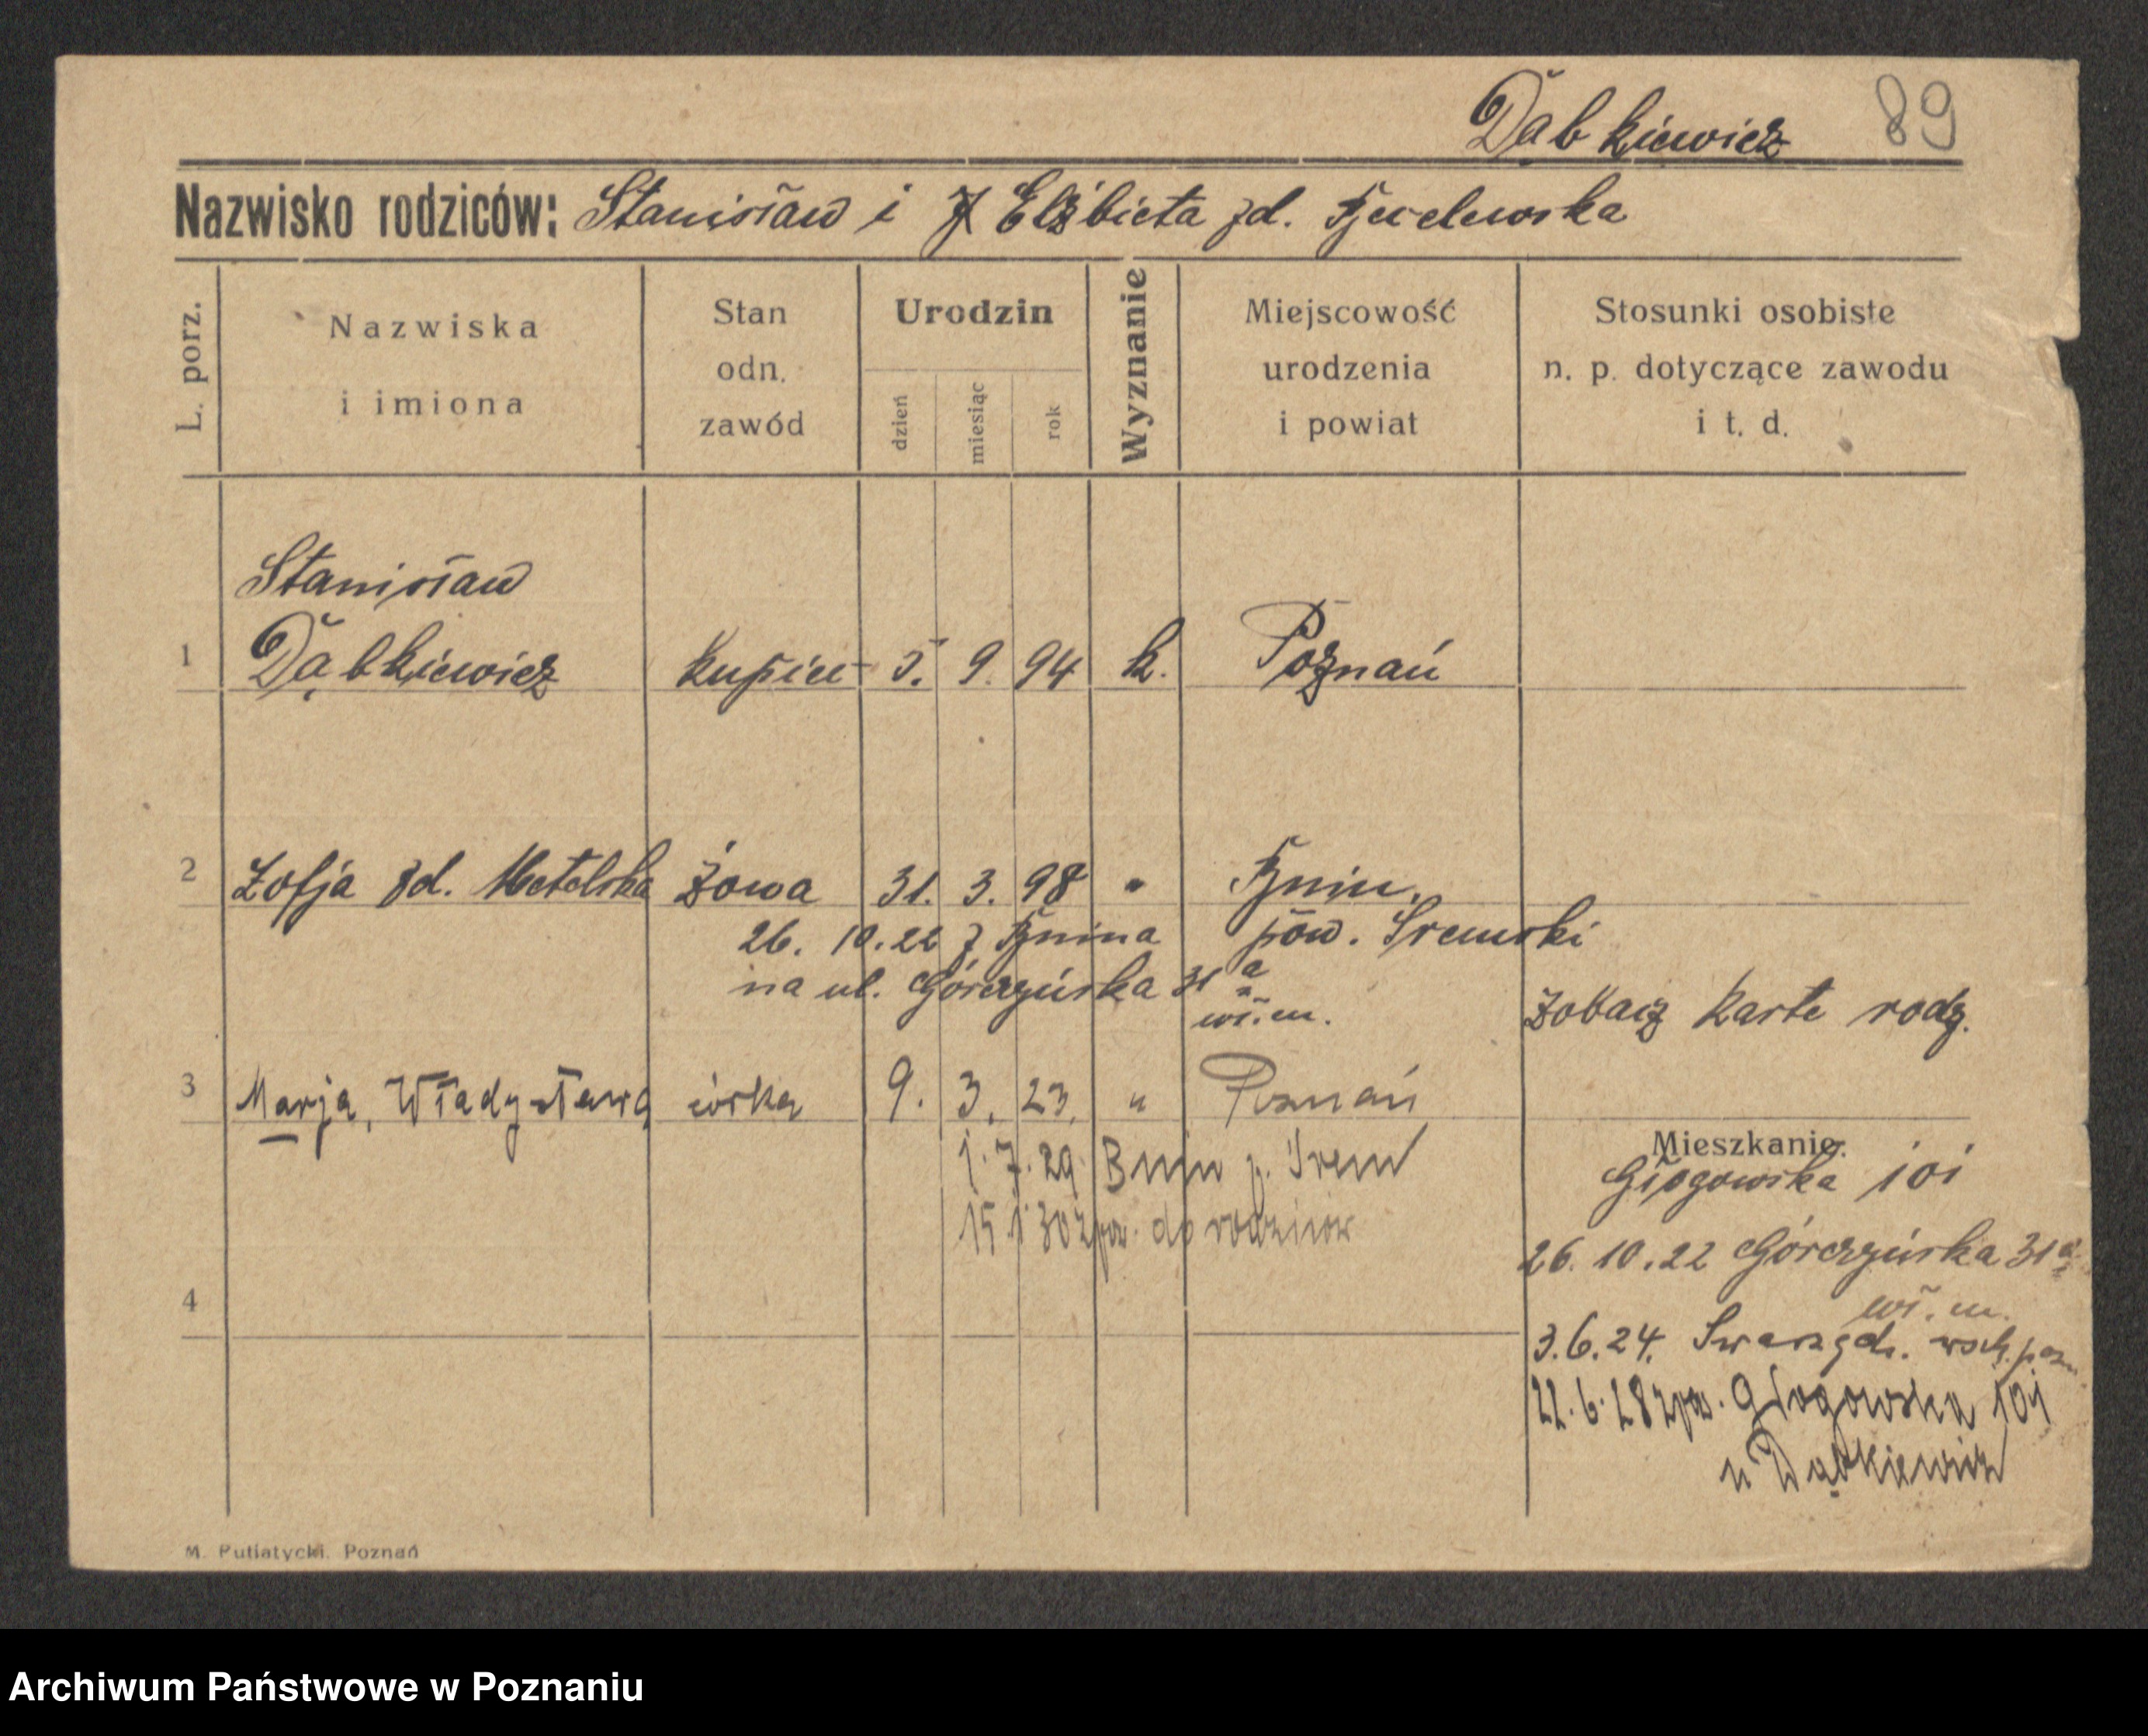 Dąbkiewicz 89
Nazwisko rodziców: Stanisław i Elżbieta zd.
L. porz.
Nazwiska i imiona
Stan odn. zawód
Urodzin
dzień miesiąc rok
Wyznanie
Miejscowość urodzenia i powiat
Stosunki osobiste n. p. dotyczące zawodu i t. d.
Stanisław
1 Dąbkiewicz kupiec 5. 9. 94 k. Poznań
2 Zofja zd. Metelska żowa 31. 3. 98 " Bnin,
26. 10. 22 z Bnina pow. Śremski
na ul. Górczyńska 31a
wł. m.
Zobacz kartę rodz.
3 Marja, Władysława córka 9. 3. 23. " Poznań
1. 7. 29 Bnin p. Śrem
15 1 30 zpow. do rodziców
Mieszkanie:
Głogowska 101
26. 10. 22 Górczyńska 31a
wł. m.
4
3. 6. 24. Swarzędz. wsch. pozn
22. 6. 28 zpow. Głogowska 101
u Dąbkiewicz
M. Putiatycki. Poznań
Archiwum Państwowe w Poznaniu